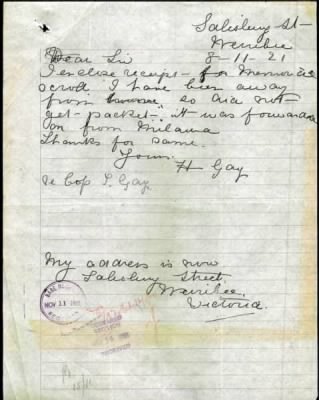 Salisbury St
Werribee
8-11-21
Dear Sir
I enclose receipt for Memorial
scroll. I have been away
from so did not
get packet. It was forwarded
on from Milawa
Thanks for same.
Yours
H Gay
re Cop S. Gay.
My address is now
Salisbury Street,
Werribee,
Victoria.
NOV 11 1921